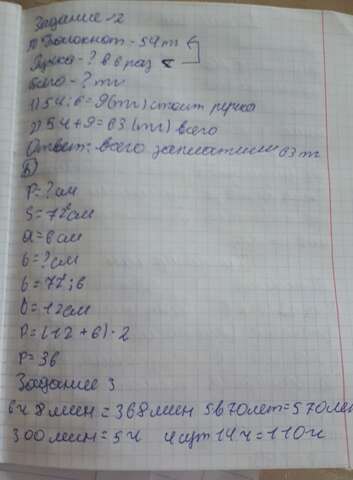 Задание 2
а) Блокнот - 54 тг
Ручка - ? в 6 раз <
Всего - ? тг
1) 54 : 6 = 9 (тг) стоит ручка
2) 54 + 9 = 63 (тг) всего
Ответ: всего заплатили 63 тг
б)
P = ? см
S = 72 см
a = 6 см
b = ? см
b = 72 : 6
b = 12 см
P = (12 + 6) · 2
P = 36
Задание 3
6ч 8 мин = 368 мин 5в 70лет = 570 лет
300 мин = 5 ч 4 сут 14 ч = 110 ч